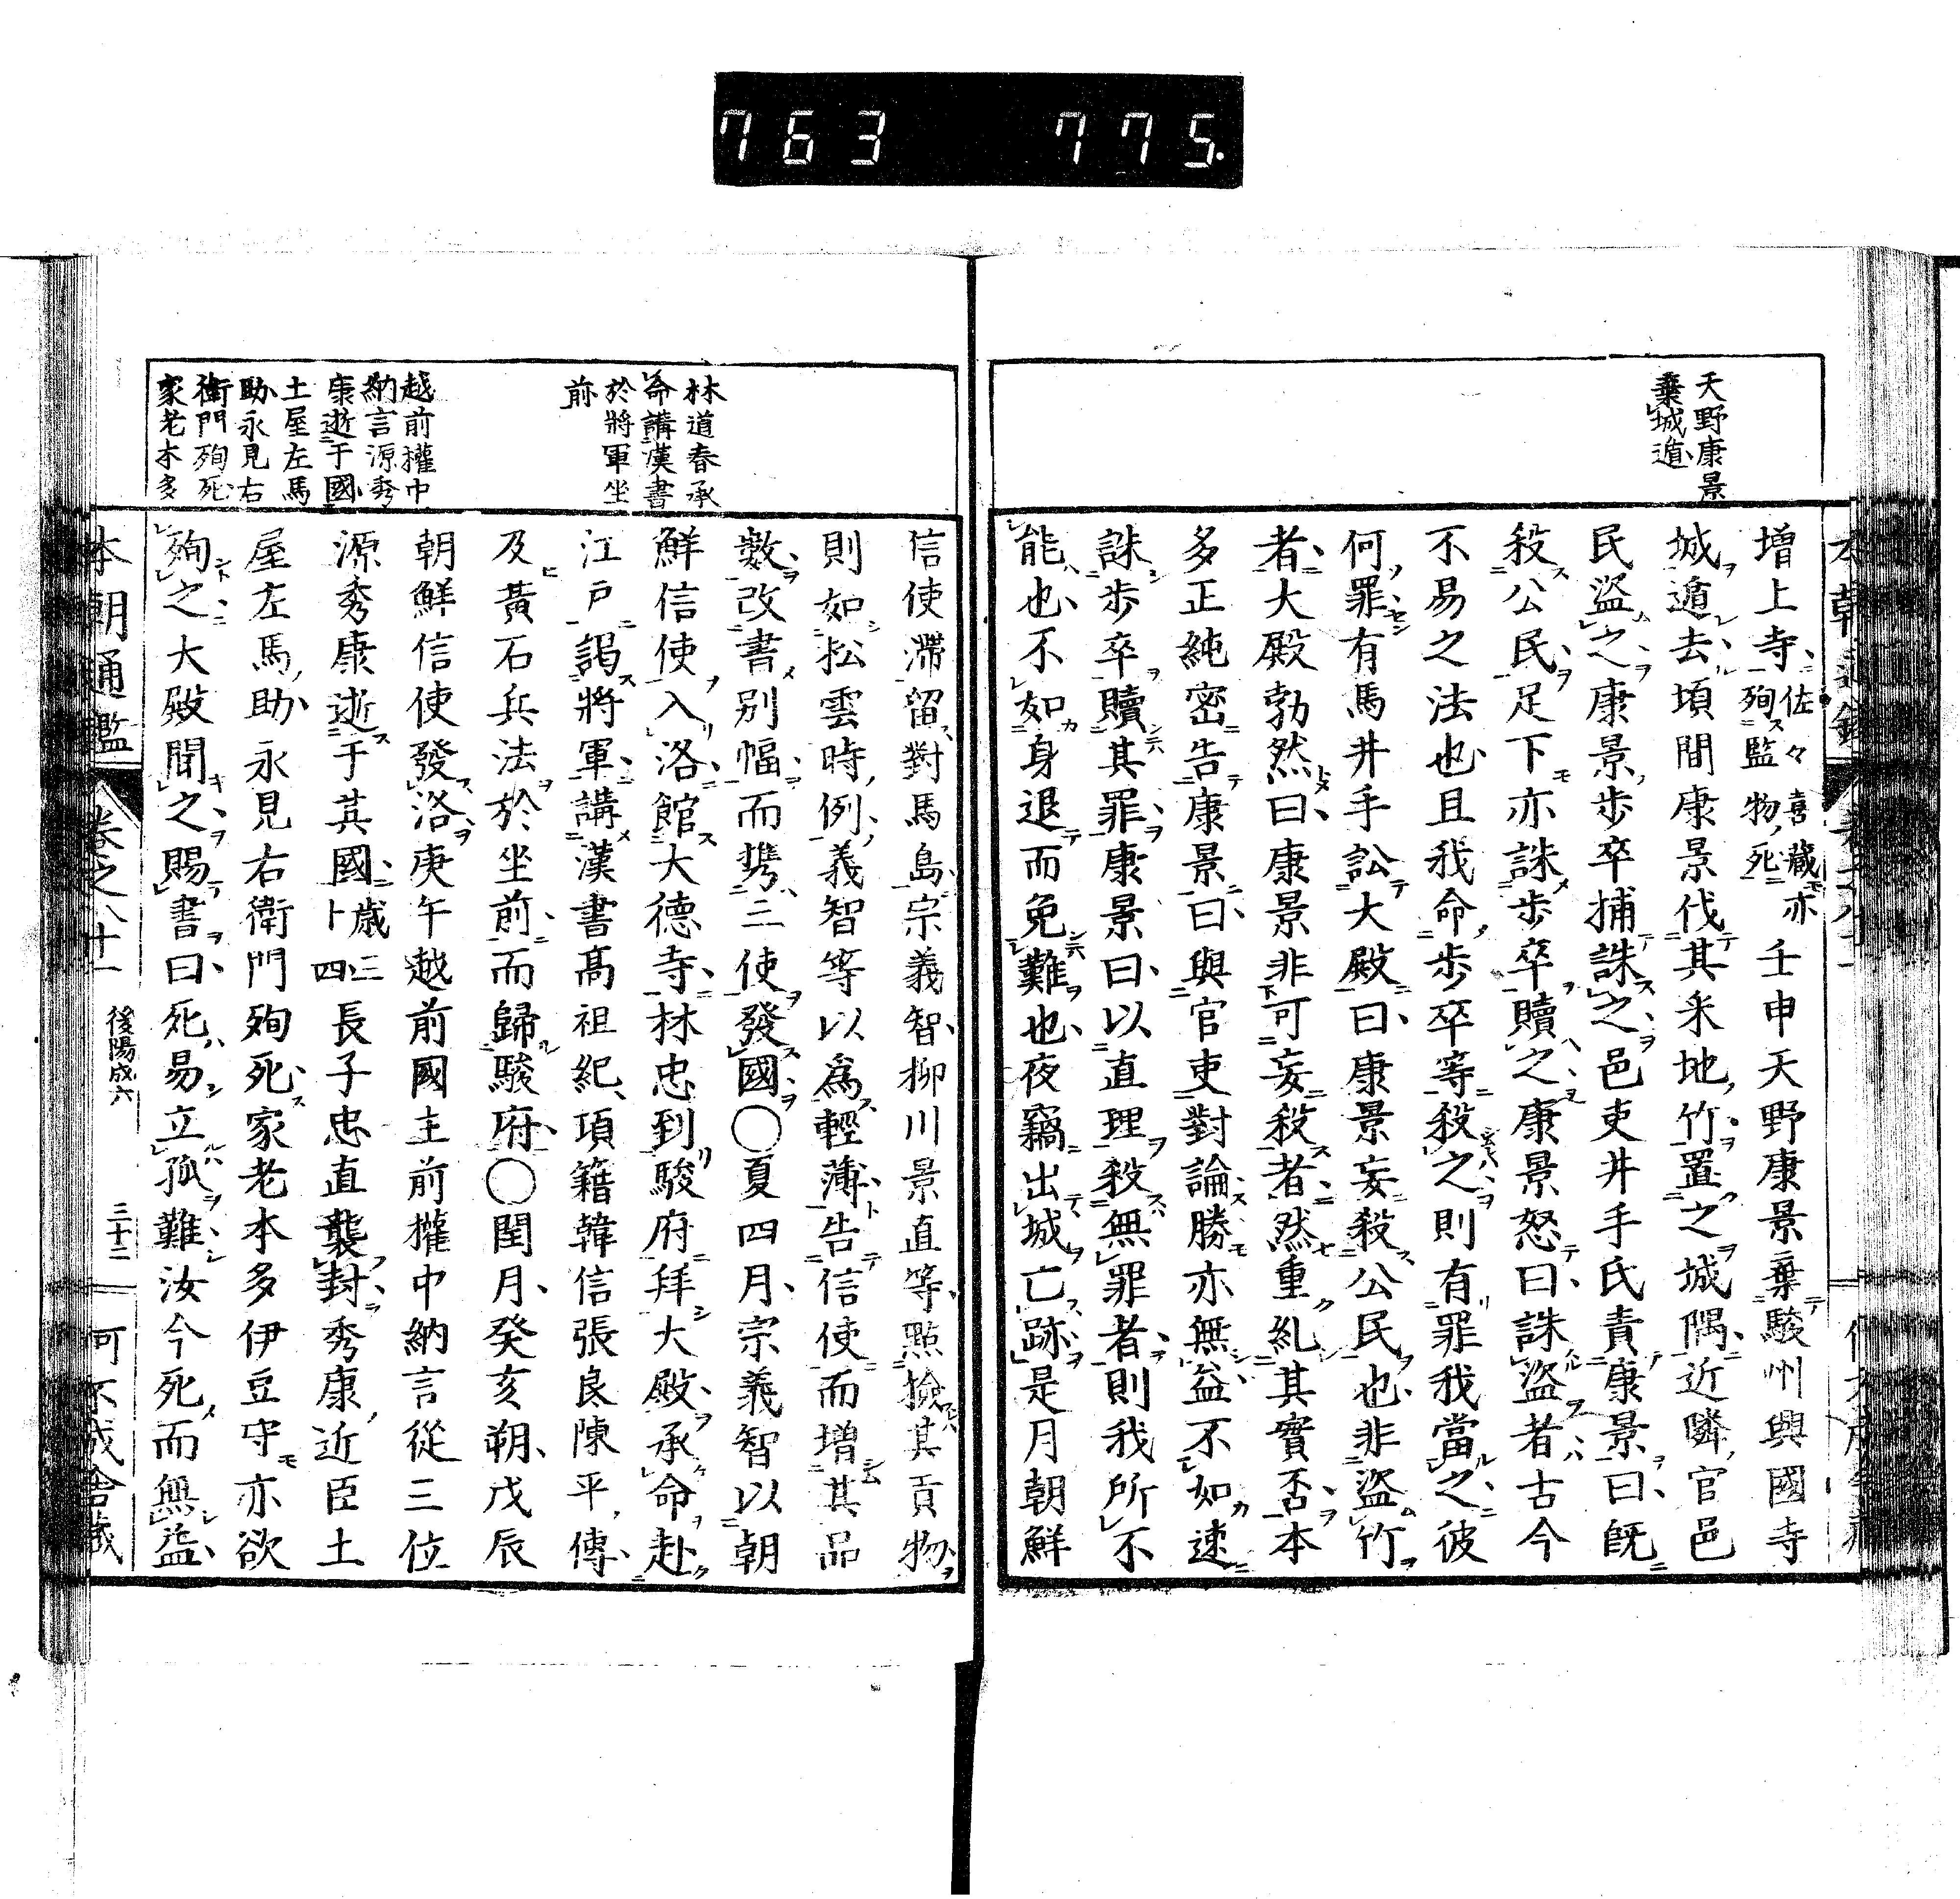 763 775.
天野康景
棄城遁
増上寺佐々喜蔵亦殉監物死壬申天野康景棄駿州興國寺
城遁去頃間康景伐其采地竹置之城隅近隣官邑
民盗之康景歩卒捕誅之邑吏井手氏責康景曰既
殺公民足下亦誅歩卒贖之康景怒曰誅盗者古今
不易之法也且我命歩卒等殺之則有罪我當之彼
何罪有馬井手訟大殿曰康景妄殺公民也非盗竹
者大殿勃然曰康景非可妄殺者然重糺其實否本
多正純密告康景曰與官吏對論勝亦無益不如速
誅歩卒贖其罪康景曰以直理殺無罪者則我所不
能也不如身退而免難也夜竊出城亡跡是月朝鮮
林道春承
命講漢書
於將軍坐
前
越前權中
納言源秀
康逝于國
土屋左馬
助永見右
衛門殉死
家老本多
信使滯留對馬島宗義智柳川景直等點撿其貢物
則如松雲時例義智等以爲輕薄告信使而増其品
數改書別幅而携三使發國〇夏四月宗義智以朝
鮮信使入洛館大德寺林忠到駿府拜大殿承命赴
江戸謁將軍講漢書高祖紀項籍韓信張良陳平傳
及黃石兵法於坐前而歸駿府〇閏月癸亥朔戊辰
朝鮮信使發洛庚午越前國主前權中納言從三位
源秀康逝于其國歲三卜四長子忠直襲封秀康近臣土
屋左馬助永見右衛門殉死家老本多伊豆守亦欲
殉之大殿聞之賜書曰死易立孤難汝今死而無益
本朝通鑑 卷之八十一 後陽成六 三十二